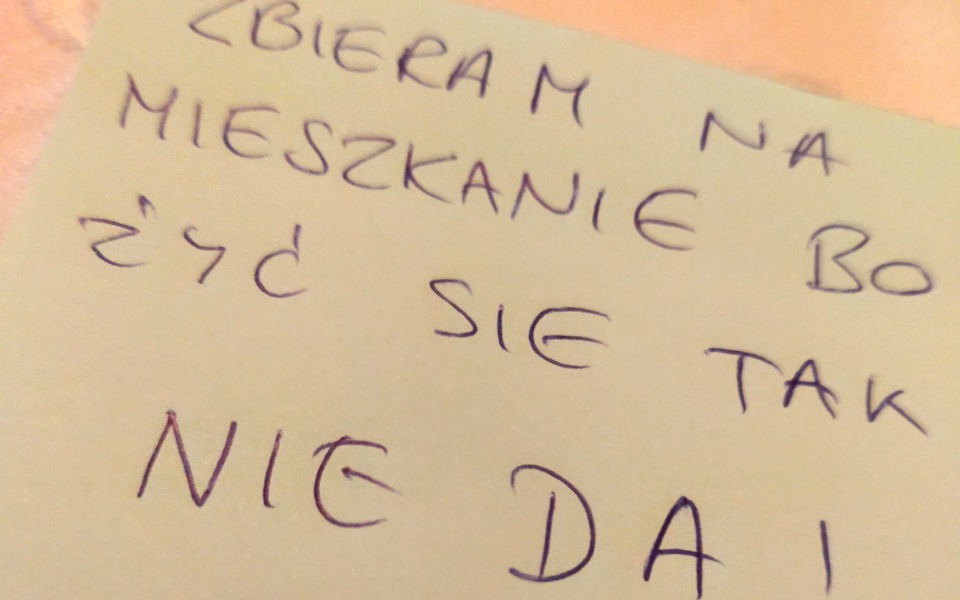 ZBIERAM NA
MIESZKANIE BO
ŻYĆ SIE TAK
NIE DA!